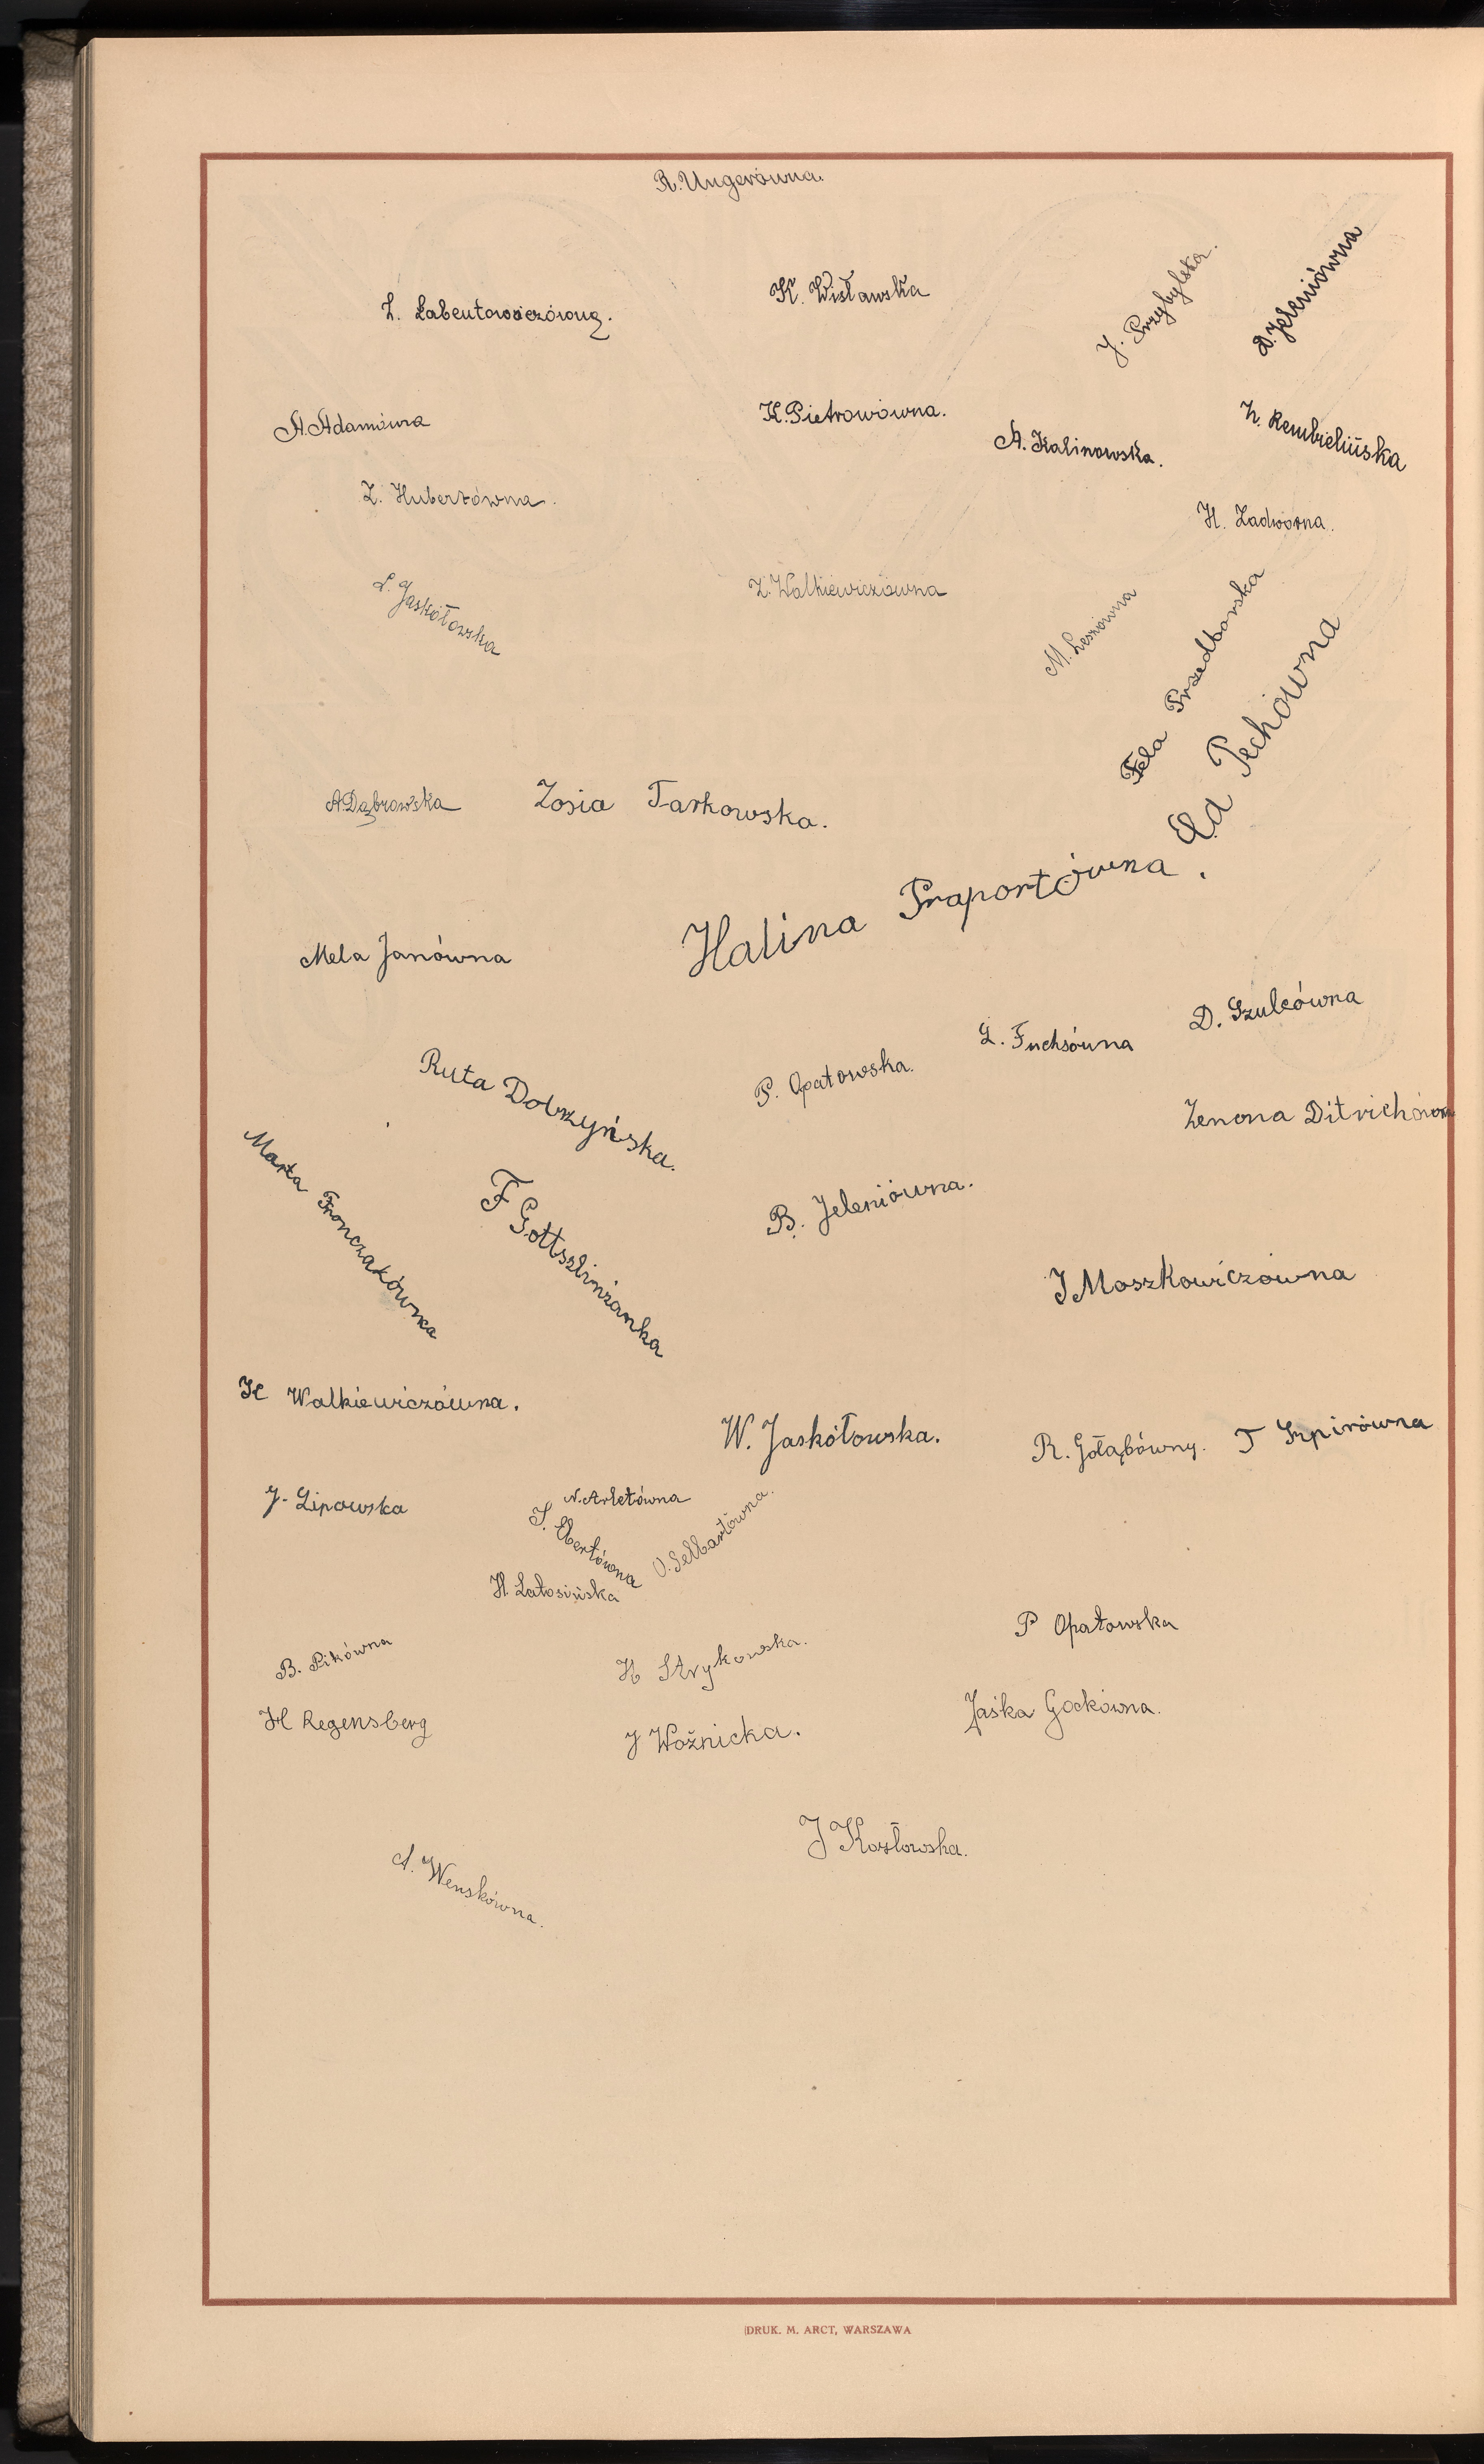 R. Ungerówna.
Z. Labentowiczówna.
K. Wisławska
J. Przybylska.
D. Jeleniówna
A. Adamówna
K. Pietrowówna.
A. Kalinowska.
Z. Rembielińska
Z. Hubertówna.
H. Zadworna.
L. Jaskółowska
Z. Walkiewiczówna
M. Lesniówna
Fela Przedborska
Ela Pechówna
A. Dąbrowska
Zosia Tarkowska.
Halina Praportówna.
Mela Janówna
D. Szulcówna
L. Fuchsówna
P. Opatowska.
Ruta Dobrzyńska.
Zenona Ditrichówna
Marta Fronczakówna
F Gottszlinżanka
B. Jeleniówna.
J Moszkowiczówna
H Walkiewiczówna.
W. Jaskółowska.
R. Gołąbówny.
T Szpirówna
J. Lipowska
N. Arletówna
S. Ebertówna
O. Selbartówna.
H. Latosińska
P Opatowska
B. Pikówna
H Strykowska.
H Regensberg
J Woźnicka.
Jaśka Gockówna.
J Kozłowska.
A. Wenskówna.
DRUK. M. ARCT, WARSZAWA